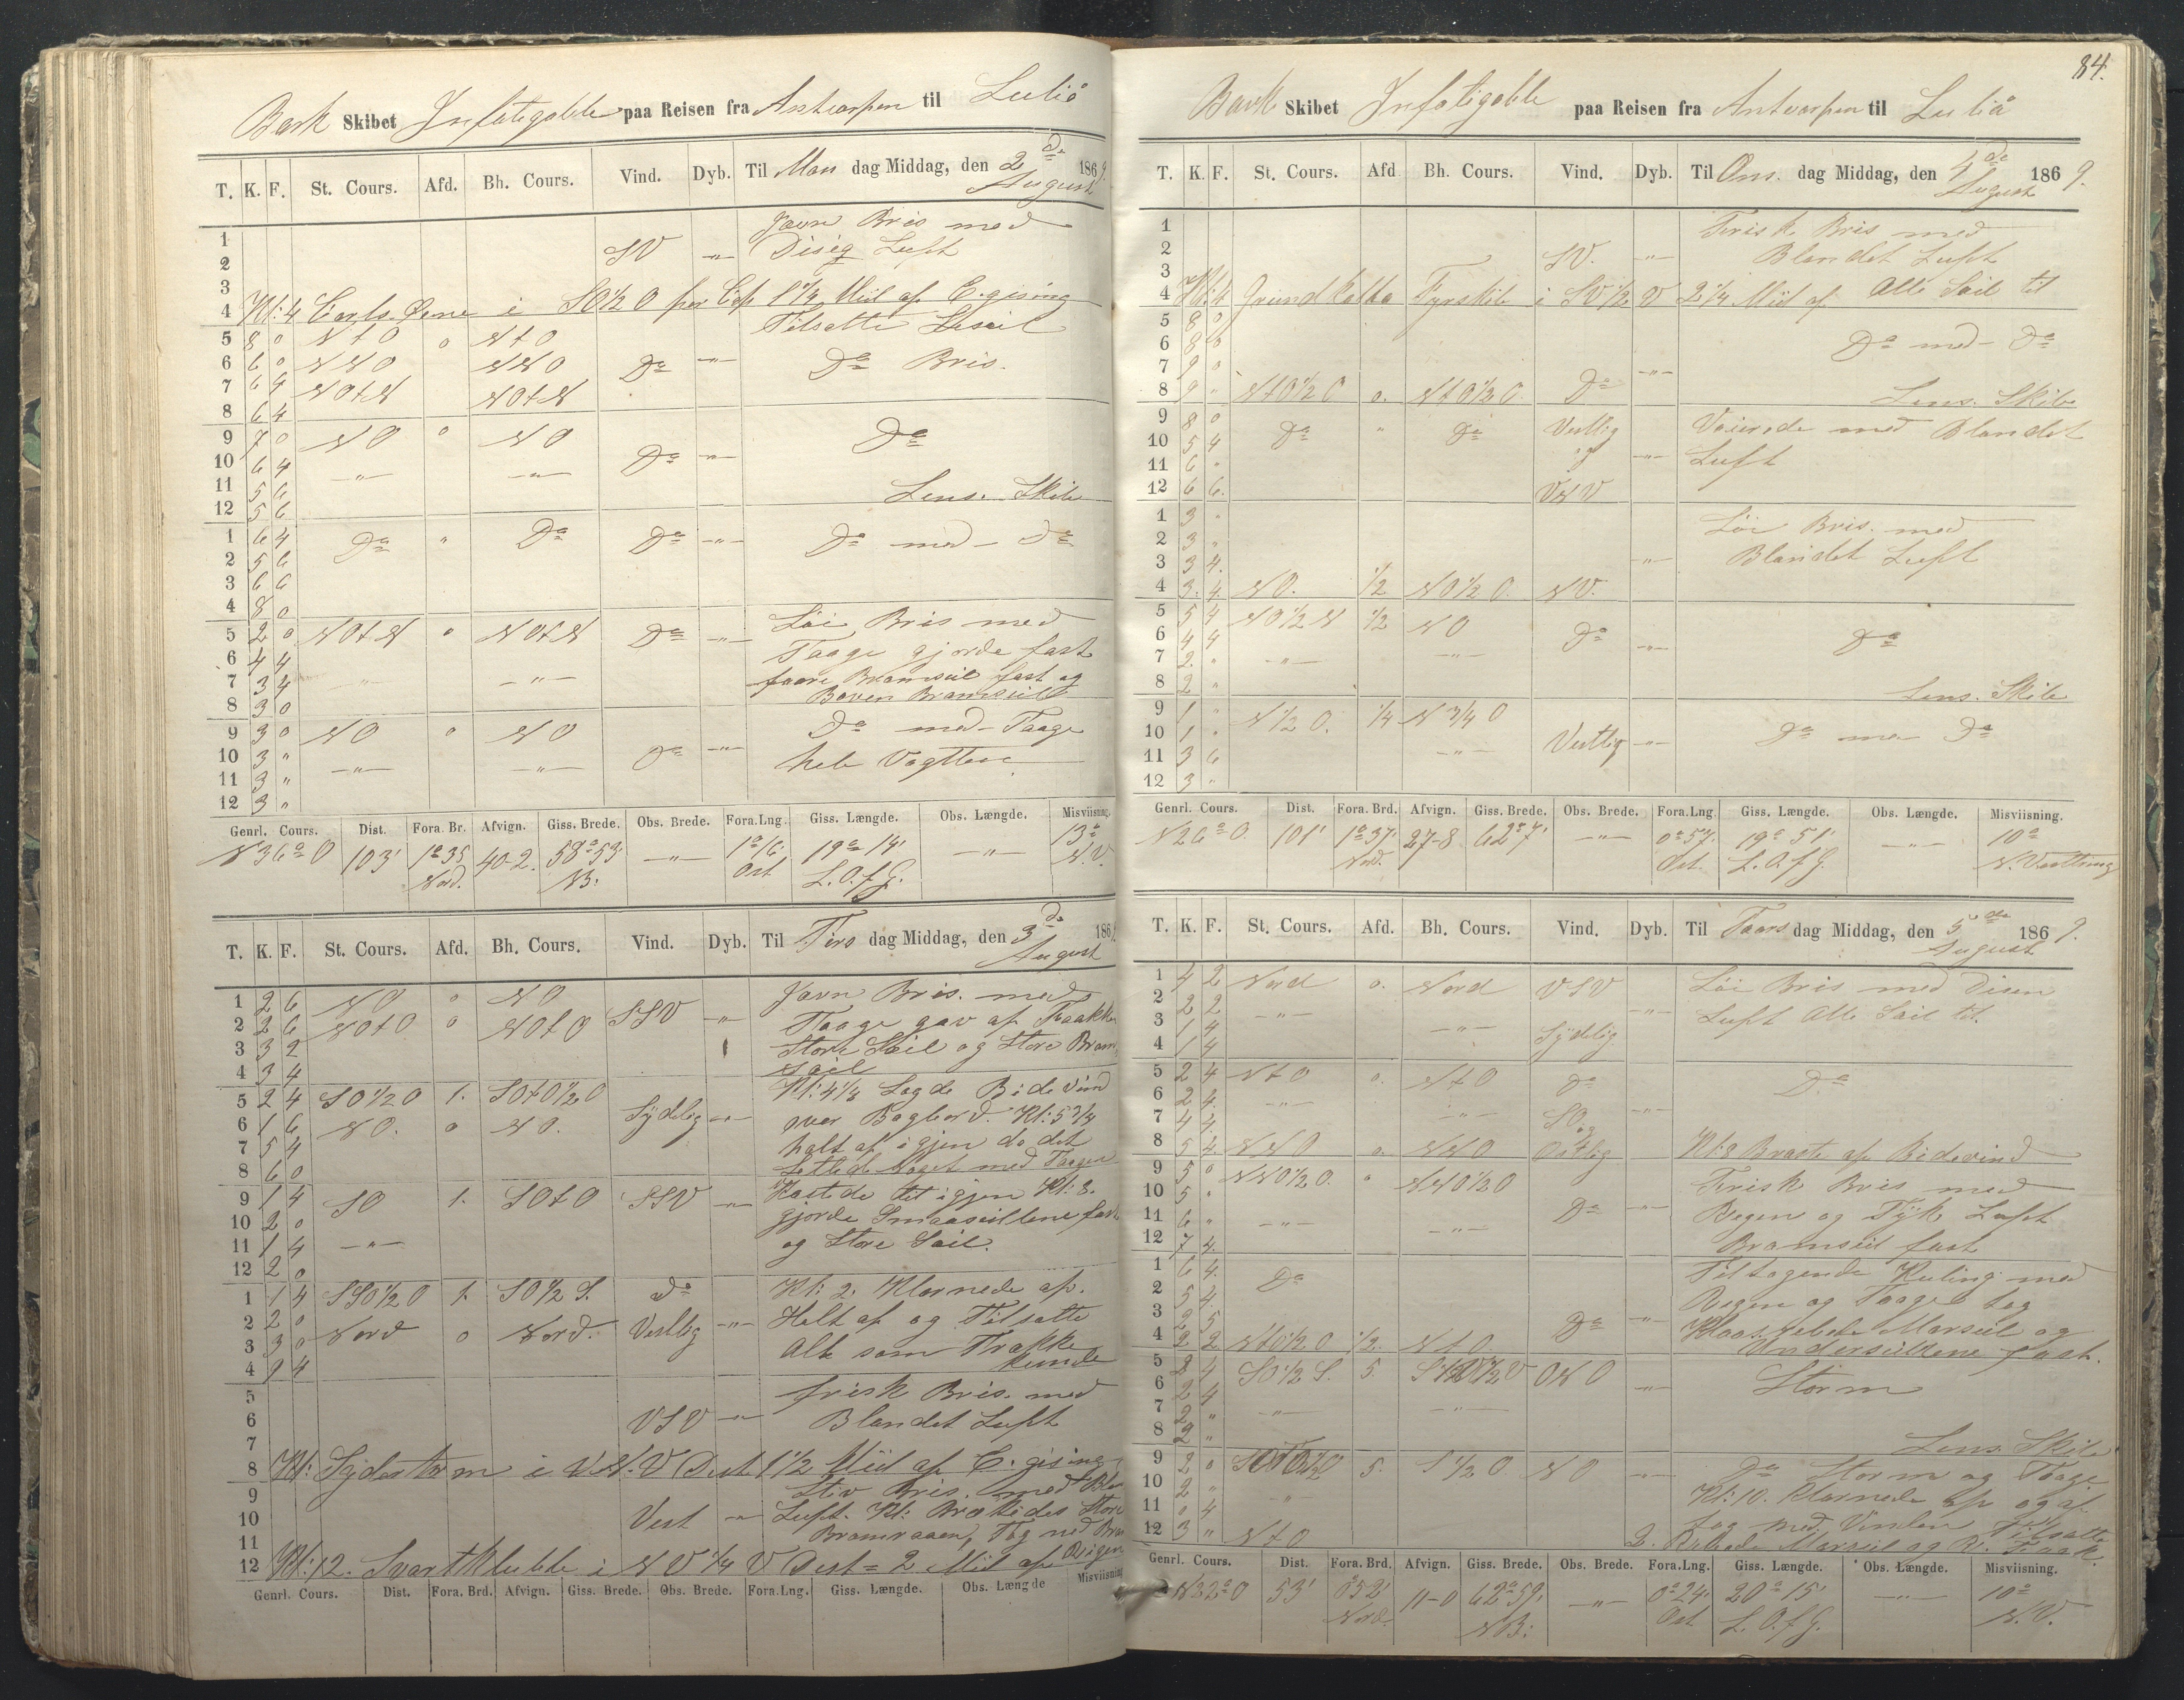 Bark Skibet Infatigable paa Reisen fra Antverpen til Luliå
T. K. F. St. Cours. Afd. Bh. Cours. Vind. Dyb. Til Man dag Middag, den 2de August 1869.
1 Jævn Bris med
2 SV -"- Disig Luft
3
4 Kl: 4 Carls Øerne i SO½O per Cop 1¼ Miil af C. gising
Tilsatte Læseil
5 8 0 NtO 0 NtO
6 6 0 NNO NNO Do -"- Do Bris.
7 6 4 NOtN NOtN
8 6 4
9 7 0 NO 0 NO Do
10 6 4 -"- -"- Do -"-
11 5 6 Lens. Skib
12 5 6
1 6 4 Do " Do Do -"- Do med Do
2 5 6
3 6 6
4 8 0
5 2 0 NOtN 0 NOtN Do -"- Løi Bris med
6 4 4 Taage gjorde fast
7 3 4 -"- -"- faore Bramseil fast og
8 3 0 Boven Bramseil
9 3 0 NO 0 NO Do med Taage
10 3 " Do -"- hele Vagtten.
11 3 " -"- -"-
12 3 "
Genrl. Cours. Dist. Fora. Br. Afvign. Giss. Brede. Obs. Brede. Fora. Lng. Giss. Længde. Obs. Længde. Misviisning.
N 36° O 103' 1°35 Nord. 40-2. 58°53' NB. -"- 1°16' Ost 19°14' L.O.f.G. -"- 13° N.V.
T. K. F. St. Cours. Afd. Bh. Cours. Vind. Dyb. Til Tirs dag Middag, den 3de August 186
1 2 6 NO 0 NO Jævn Bris. med
2 2 6 NOtO 0 NOtO SSV -"- Taage gav af Traakke
3 3 2 Store Seil og Store Bram
4 3 4 seil
5 2 4 SO½O 1. SOtO½O Kl: 4½ Lagde Bidevind
6 1 6 NO. 0 NO. Sydelig -"- over Bagbord. Kl: 5¾
7 5 4 halt af igjen da det
8 6 0 lettede noget med Taagen
9 1 4 SO 1. SOtO SSV -"- Kastede tet igjen Kl: 8.
10 2 0 gjorde Smaaseillene fast
11 1 4 -"- og Store Seil.
12 2 0
1 1 4 SSO½O 1. SO½S. Do Kl: 2. Klarnede af.
2 2 0 Nord 0 Nord. Vestlig -"- Holt af og Tilsatte
3 3 0 Alt som Trække
4 9 4 kunde
5 frisk Bris. med
6 VSV -"- Blandet Luft
7
8 Kl: Syderarm i N.V Dist 1½ Miil af C. gising
9 Stiv Bris. med Bla
10 Vest -"- Luft. Kl: Brækkedes Store
11 Bramraaen, Tog ned Bra
12 Kl: 12. Svartklubbe i NV¼V Dist = 2 Miil af Rigen
Genrl. Cours. Dist. Fora. Brd. Afvign. Giss. Brede. Obs. Brede. Fora. Lng. Giss. Længde. Obs. Længde Misviisning
84.
Bark Skibet Infatigable paa Reisen fra Antverpen til Luliå
T. K. F. St. Cours. Afd Bh. Cours. Vind. Dyb. Til Ons. dag Middag, den 4de August 1869.
1 Frisk Bris med
2 SV. -"- Blandet Luft
3
4 Kl: 4 Grundkallka Fyrskib i SV½V 2¼ Miil af Alle Seil til
5 8 0
6 8 0 Do med Do
7 9 0 -"-
8 9 " NtO½O 0. NtO½O Do Lens. Skib
9 8 0 Do " Do Vestlig Vaierede med Blandet
10 5 4 og -"- Luft
11 6 "
12 6 6. VNV
1 3 " Løi Bris. med
2 3 " Blandet Luft
3 3 4. -"-
4 3. 4. NO. ½ NO½O. NV.
5 5 4 NO½N ½ NO Do Do
6 4 4 -"-
7 2. " -"- -"-
8 2 " Lens. Skib
9 1 " N½O. ¼ N¾O
10 1 " Vestlig -"- Do med Do
11 3 6 -"-
12 3 "
Genrl. Cours. Dist. Fora. Brd. Afvign. Giss. Brede. Obs. Brede. Fora. Lng Giss. Længde. Obs. Længde. Misviisning.
N 26° O. 101' 1°37' Nord. 27-8 62°7' -"- 0°57' Ost. 19°51' L.O.f.G. -"- 10° N. Vestlning
T. K. F. St. Cours. Afd. Bh. Cours. Vind. Dyb. Til Taars dag Middag, den 5de August 1869.
1 4 2 Nord 0. Nord VSV Løi Bris med Disen
2 2 2 -"- -"- Luft Alle Seil til.
3 1 4 -"- Sydelig
4 1 4
5 2 4 NtO 0. NtO Do Do
6 2 4. -"- -"-
7 4 4. -"- SO og
8 5 4. NNO 0. NNO Ostlig Kl: 8 Braste af Bidevind
9 5 0 NNO½O. " NNO½O Frisk Bris med
10 5 " Do -"- Regen og Tyk Luft
11 6 " -"- -"- Bramseil fast
12 7 4.
1 6 4. Do Tiltagende Kuling med
2 5 4 Regen og Taage tog
3 2 5 Do -"- Klaas. rebede Marseil og
4 2 2 NtO½O ½. NtO. Underseillene fast.
5 2 4 SO½S. 5. ONO Storm
6 2 4 -"-
7 2 " -"- -"-
8 2 " Lens. Skib
9 2 0 5. S½O NO -"- Do Storm og Taage
10 2 " " Kl: 10. Klarnede op og af
11 0 4 tog med Vinden Tilsatte
12 3 " NtO 2. Rebede Marseil og
Genrl. Cours. Dist. Fora. Brd. Afvign. Giss. Brede. Obs. Brede. Fora. Lng. Giss. Længde. Obs. Længde. Misviisning.
N 22° O 53' 0°52' Nord. 11-0 62°59' NB: -"- 0°24' Ost 20°15' L.O.f.G. -"- 10° N.V.